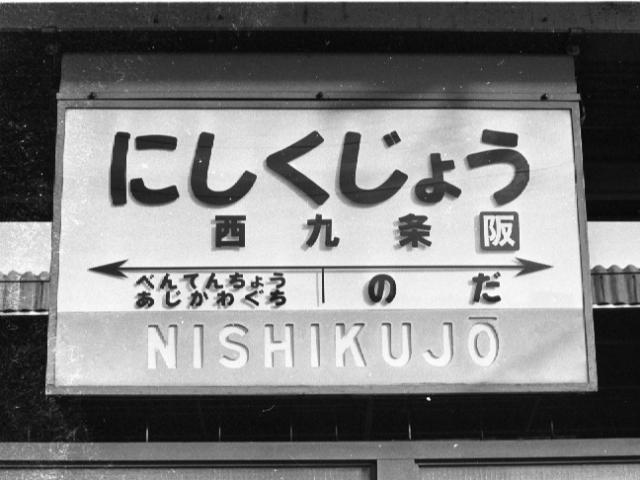 にしくじょう
西九条 阪
べんてんちょう
あじかわぐち
のだ
NISHIKUJŌ